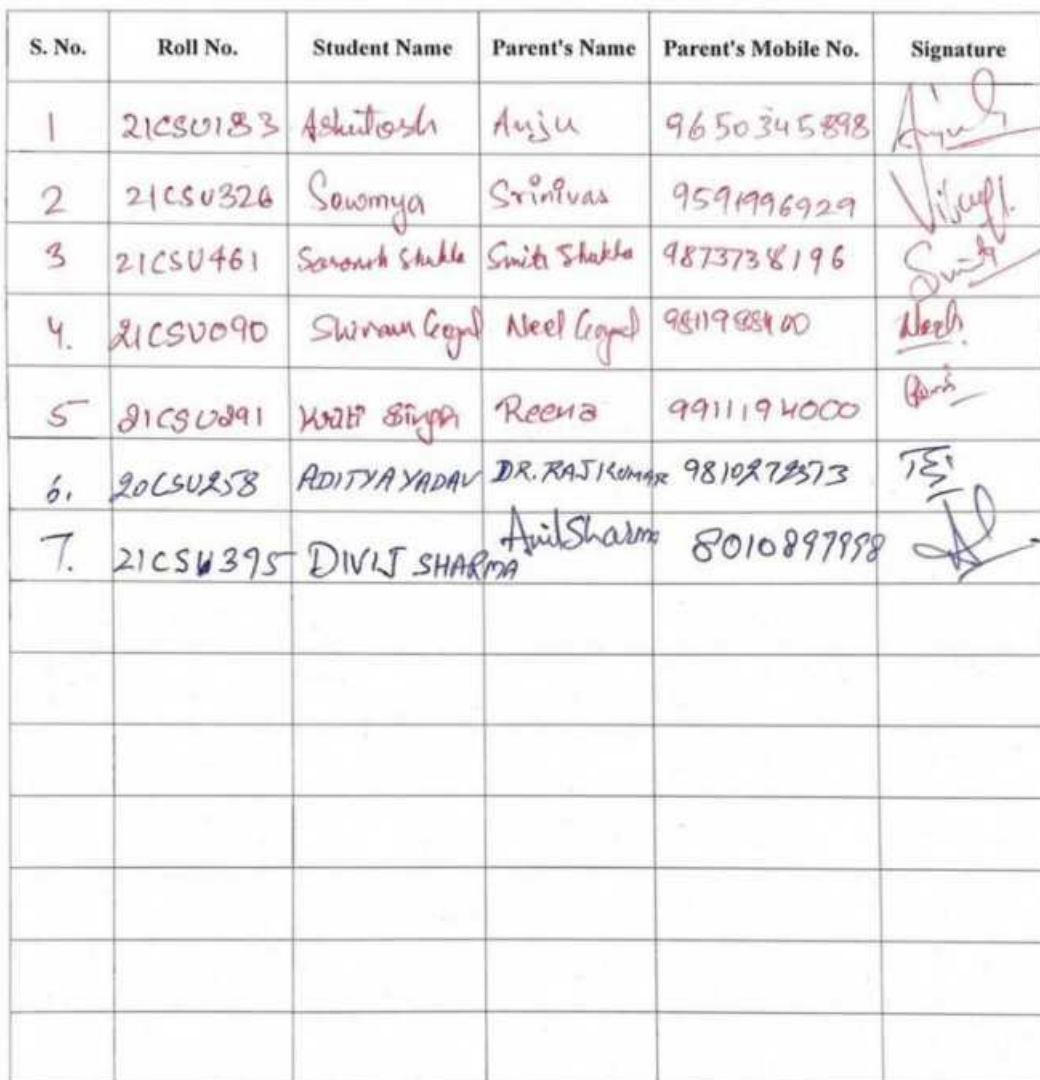 S. No. Roll No. Student Name Parent's Name Parent's Mobile No. Signature
1 21CSU183 Ashutosh Anju 9650345898
2 21CSU326 Sowmya Srinivas 9591996929
3 21CSU461 Saransh Shukla Smita Shukla 9873738196
4. 21CSU090 Goyal Neel Goyal
5 21CSU291 Kirti Singh Reena 9911194000
6. 20CSU258 ADITYA YADAV DR. RAJKUMAR
7. 21CSU395 DIVIJ SHARMA Anil Sharma 8010897998